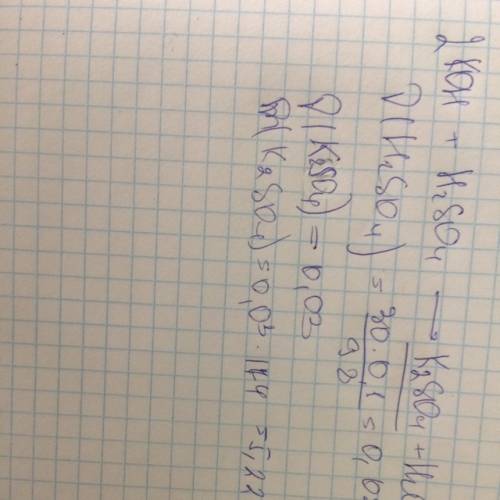 2KOH + H₂SO₄ → K₂SO₄ + H₂
ν(H₂SO₄) = 30·0,1 / 98 = 0,03
ν(K₂SO₄) = 0,03
m(K₂SO₄) = 0,03 · 174 = 5,22